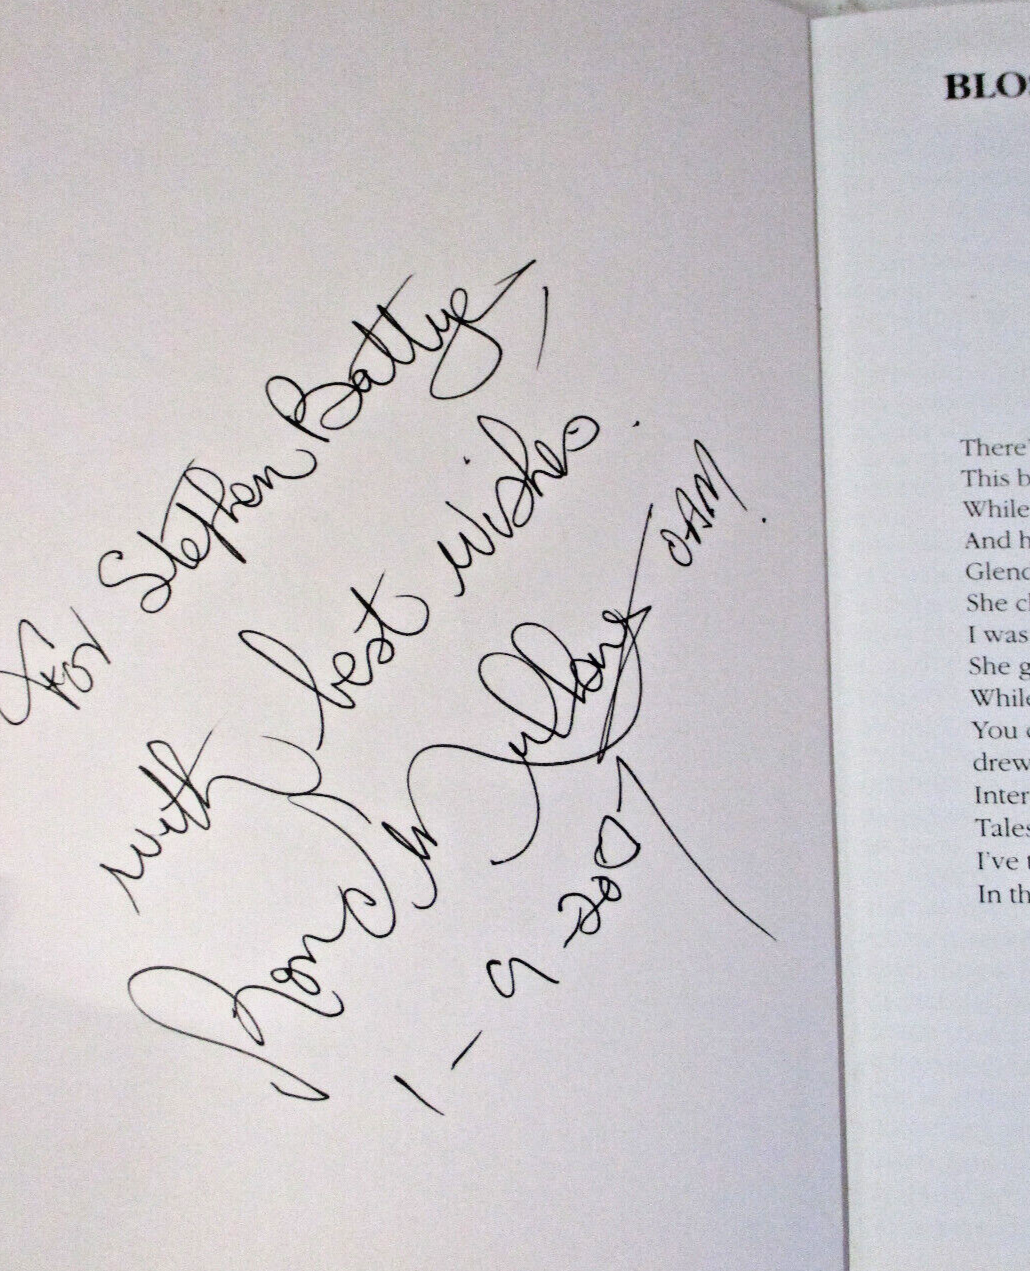 For Stephen Battye,
with best wishes.
Ron OAM.
1-9-2007
BLOS
There'
This b
While
And h
Glenc
She cl
I was
She g
While
You c
drew
Inter
Tales
I've t
In th